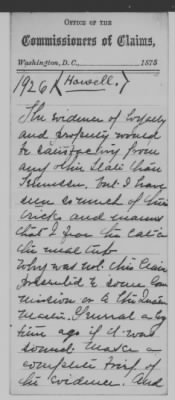 OFFICE OF THE
Commissioners of Claims,
Washington, D. C., 1875
1926 (Howell.)
The evidence of loyalty
and property would
be satisfactory from
any other State than
Tennessee, but I have
seen so much of their
tricks and manners
that I fear the cat in
the meal tub
Why was not this Claim
presented to some Com
mission or to the Quarter
Master General a long
time ago if it was
sound? Make a
complete brief of
the evidence. And